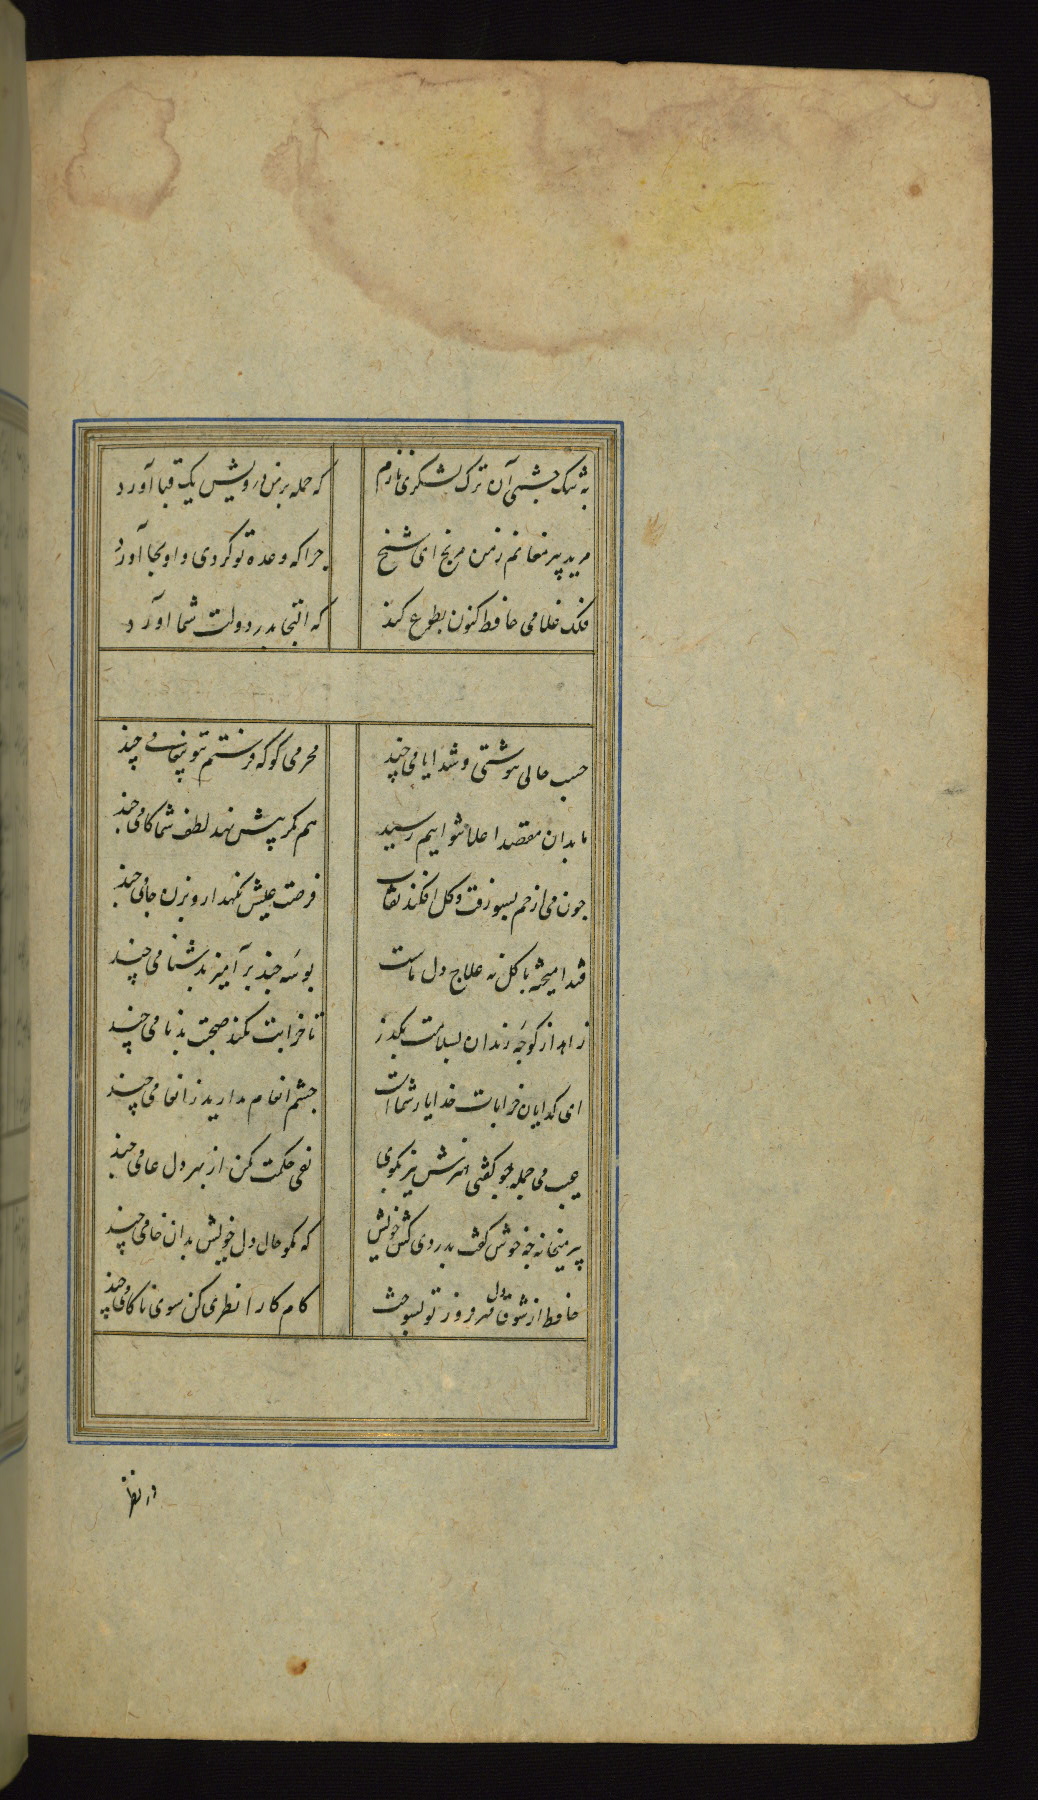 به تنگ چشمی آن ترک لشکری نازم که حمله بر من درویش یک قبا آورد
مرید پیر مغانم ز من مرنج ای شیخ چرا که وعده تو کردی و او بجا آورد
فلک غلامی حافظ کنون بطوع کند که التجا بدر دولت شما آورد
حسب حالی ننوشتی و شد ایامی چند محرمی کو که فرستم بتو پیغامی چند
ما بدان مقصد اعلا نتوانیم رسید هم مگر پیش نهد لطف شما کامی چند
چون می از خم بسبو رفت و کل افکند نقاب فرصت عیش نگهدار و بزن جامی چند
قند آمیخته با کل نه علاج دل ماست بوسهٔ چند برآمیز بدشنامی چند
زاهد از کوچهٔ رندان بسلامت بگذر تا خرابت نکند صحبت بدنامی چند
ای کدایان خرابات خدا یار شماست چشم انعام مدارید ز انعامی چند
عیب می جمله چو گفتی هنرش نیز بگوی نفی حکمت مکن از بهر دل عامی چند
پیر میخانه چه خوش گفت بدردی کش خویش که مگو حال دل خویش بدان خامی چند
حافظ از شوق دل مهر فروز تو بسوخت کام کارا نظری کن سوی ناکامی چند
در نظر